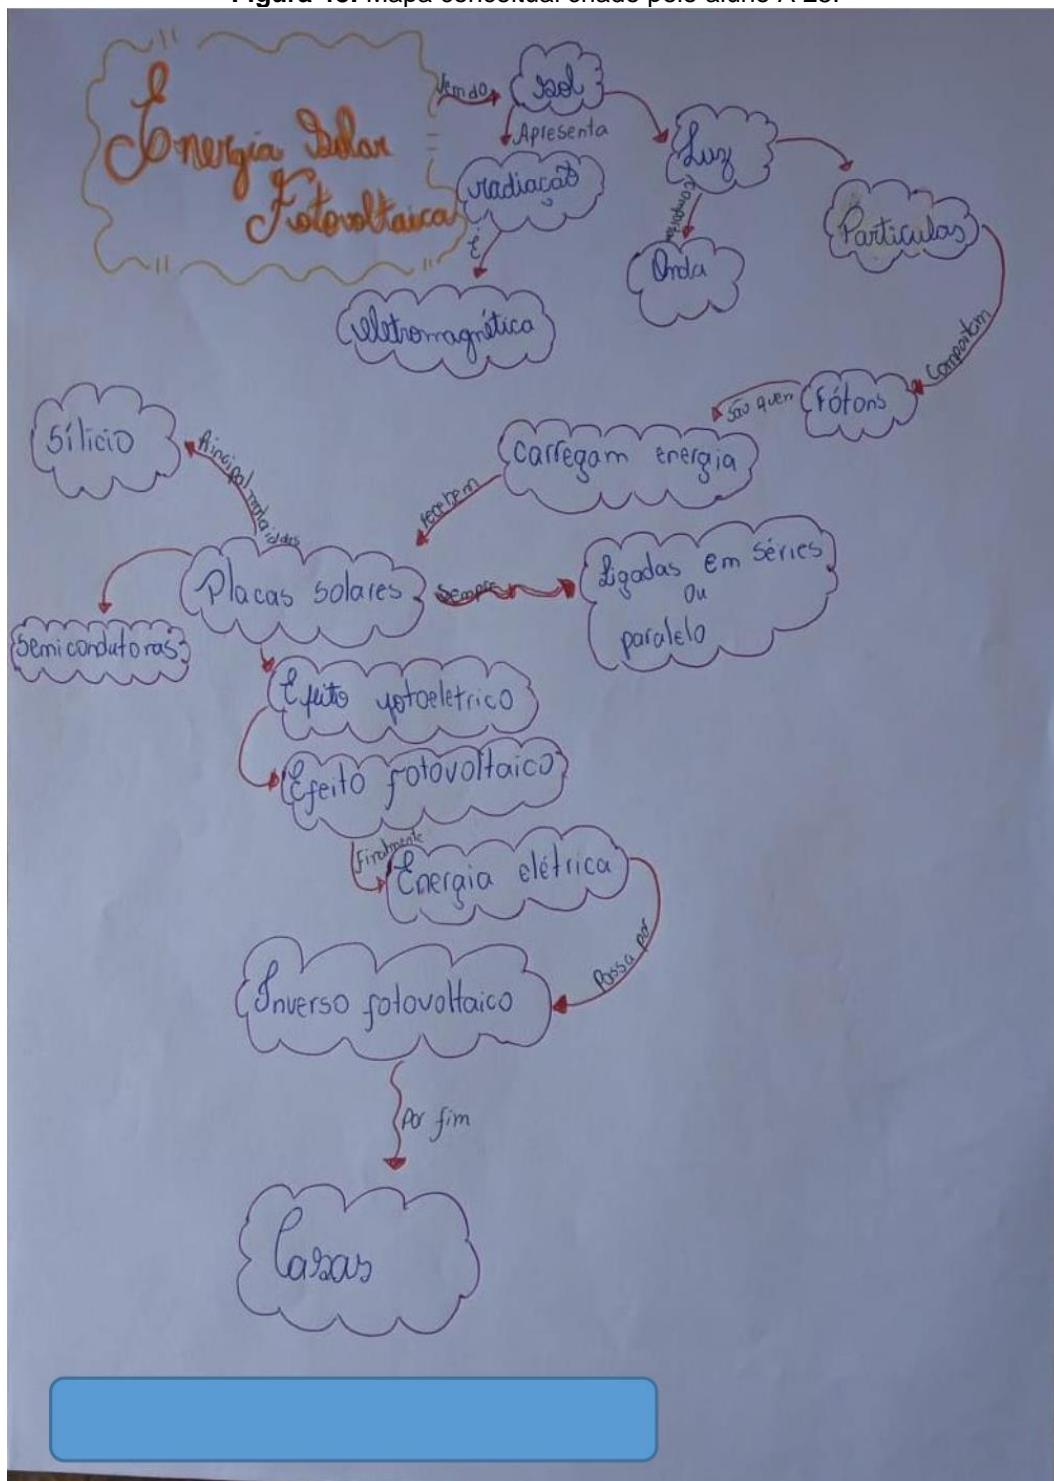 Figura 43. Mapa conceitual criado pelo aluno A 28.
Energia Solar
Fotovoltaica
Vem do
Sol
Apresenta
radiação
É
eletromagnética
Luz
Onda
Particulas
Comportam
Fótons
São quem
Carregam energia
recebem
Placas solares
Principal
Sílicio
Semicondutoras
Sempre
Ligadas em séries
ou
paralelo
Efeito fotoeletrico
Efeito fotovoltaico
Finalmente
Energia elétrica
Passa por
Inverso fotovoltaico
Por fim
Casas